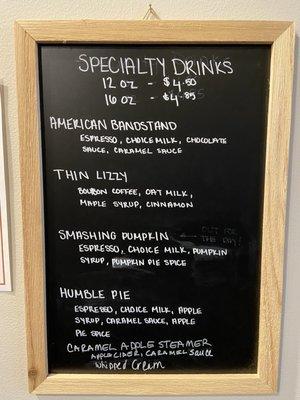 SPECIALTY DRINKS
12 OZ - $4.50
16 OZ - $4.85
AMERICAN BANDSTAND
ESPRESSO, CHOICE MILK, CHOCOLATE
SAUCE, CARAMEL SAUCE
THIN LIZZY
BOURBON COFFEE, OAT MILK,
MAPLE SYRUP, CINNAMON
SMASHING PUMPKIN ← OUT FOR
THE DAY!
ESPRESSO, CHOICE MILK, PUMPKIN
SYRUP, PUMPKIN PIE SPICE
HUMBLE PIE
ESPRESSO, CHOICE MILK, APPLE
SYRUP, CARAMEL SAUCE, APPLE
PIE SPICE
CARAMEL APPLE STEAMER
APPLE CIDER, CARAMEL Sauce
Whipped Cream